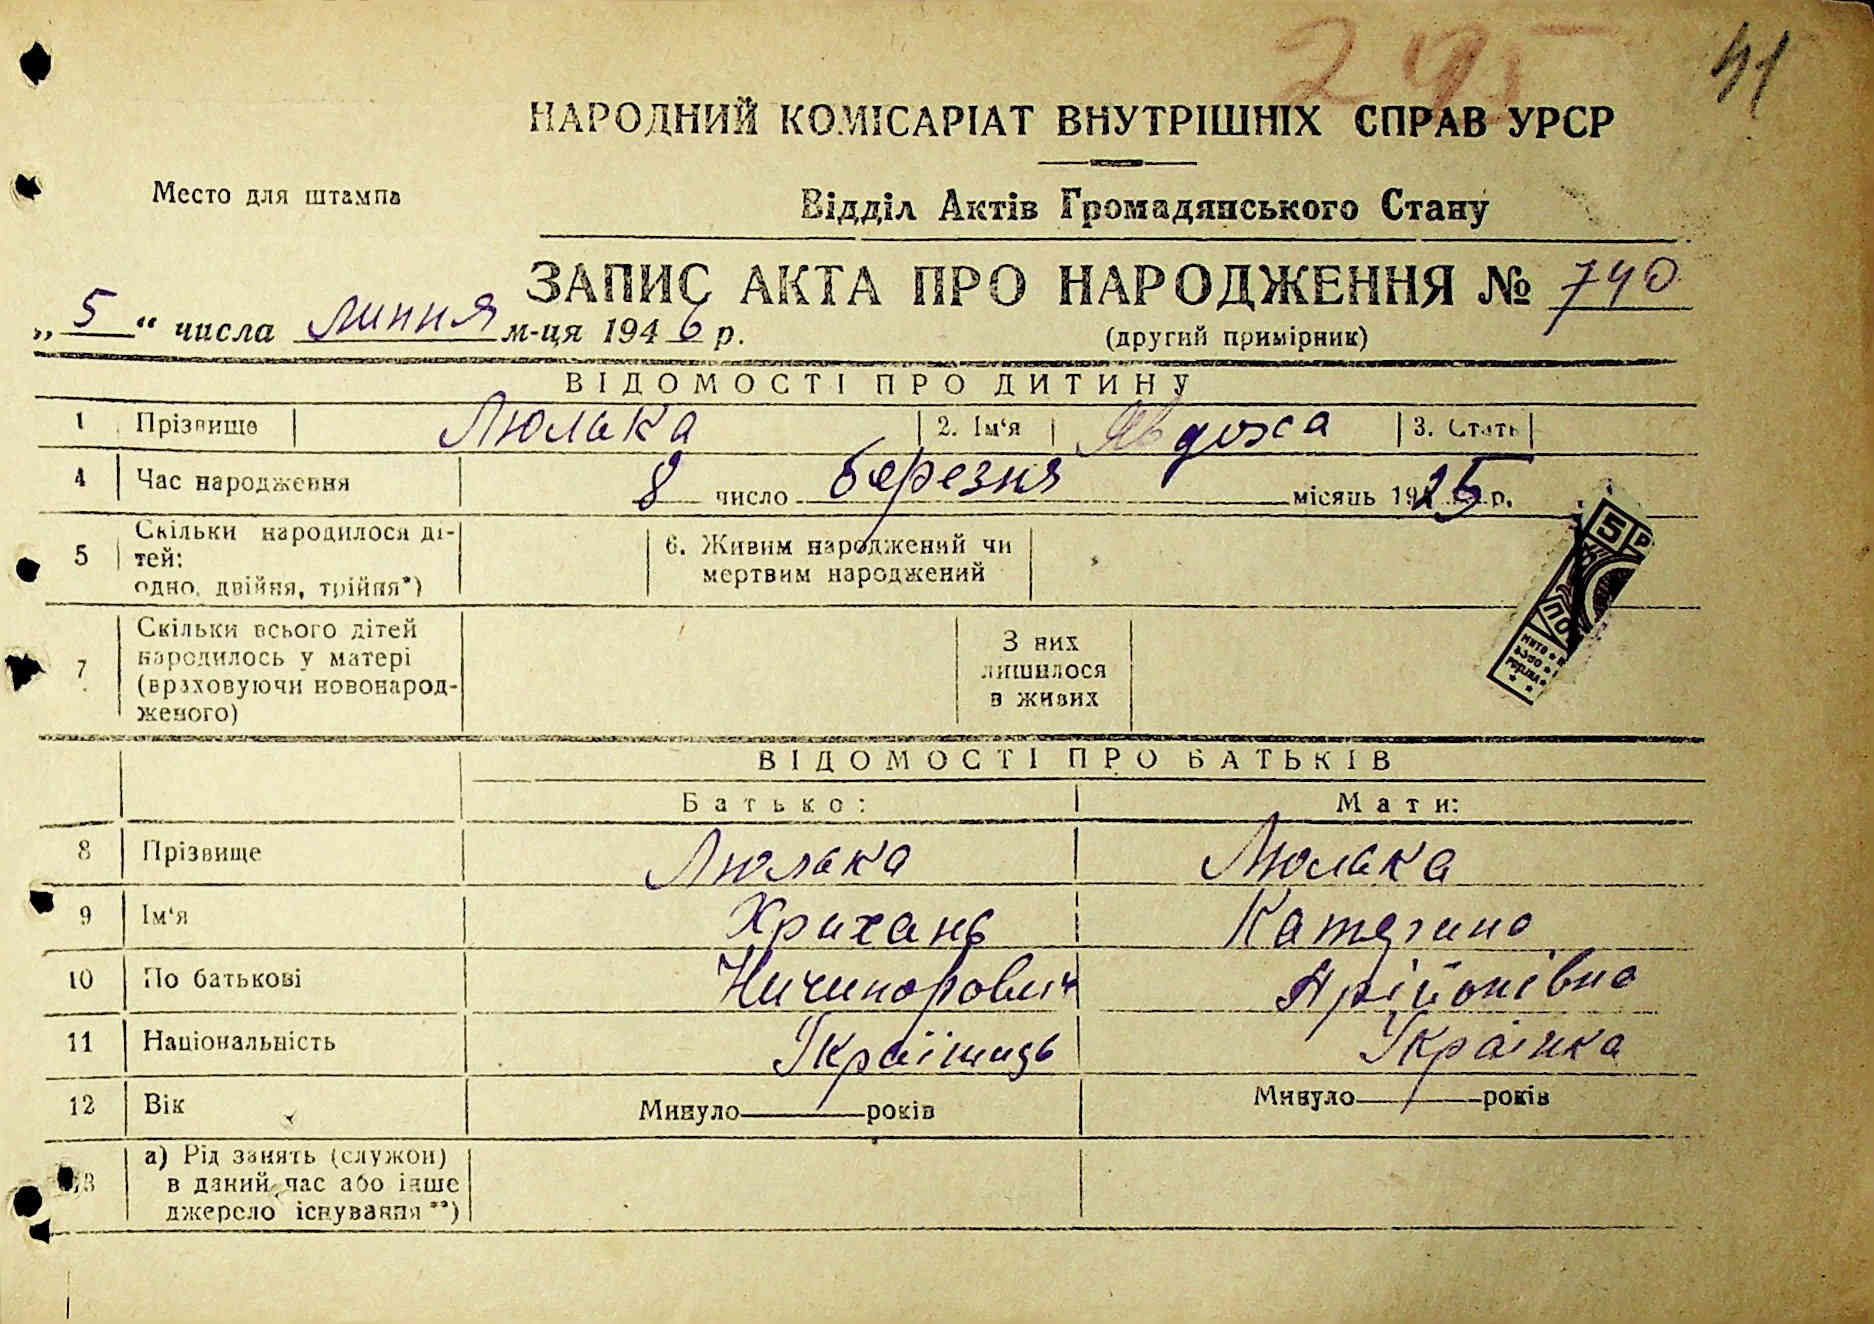 295
41
НАРОДНИЙ КОМІСАРІАТ ВНУТРІШНІХ СПРАВ УРСР
Место для штампа
Відділ Актів Громадянського Стану
ЗАПИС АКТА ПРО НАРОДЖЕННЯ № 740
„ 5 “ числа липня м-ця 1946 р.
(другий примірник)
ВІДОМОСТІ ПРО ДИТИНУ
1 Прізвище Люлька 2. Ім'я Явдоха 3. Стать
4 Час народження 8 число березня місяць 1925 р.
5 Скільки народилося ді-
тей:
одно, двійня, трійня*)
6. Живим народжений чи
мертвим народжений
7 Скільки всього дітей
народилось у матері
(враховуючи новонарод-
женого)
З них
лишилося
в живих
5 Р
ВІДОМОСТІ ПРО БАТЬКІВ
Батько: Мати:
8 Прізвище Люлька Люлька
9 Ім'я Крихань Катерина
10 По батькові Ничипорович
11 Національність Українець Українка
12 Вік Минуло років Минуло років
13 а) Рід занять (служби)
в даний час або інше
джерело існування **)